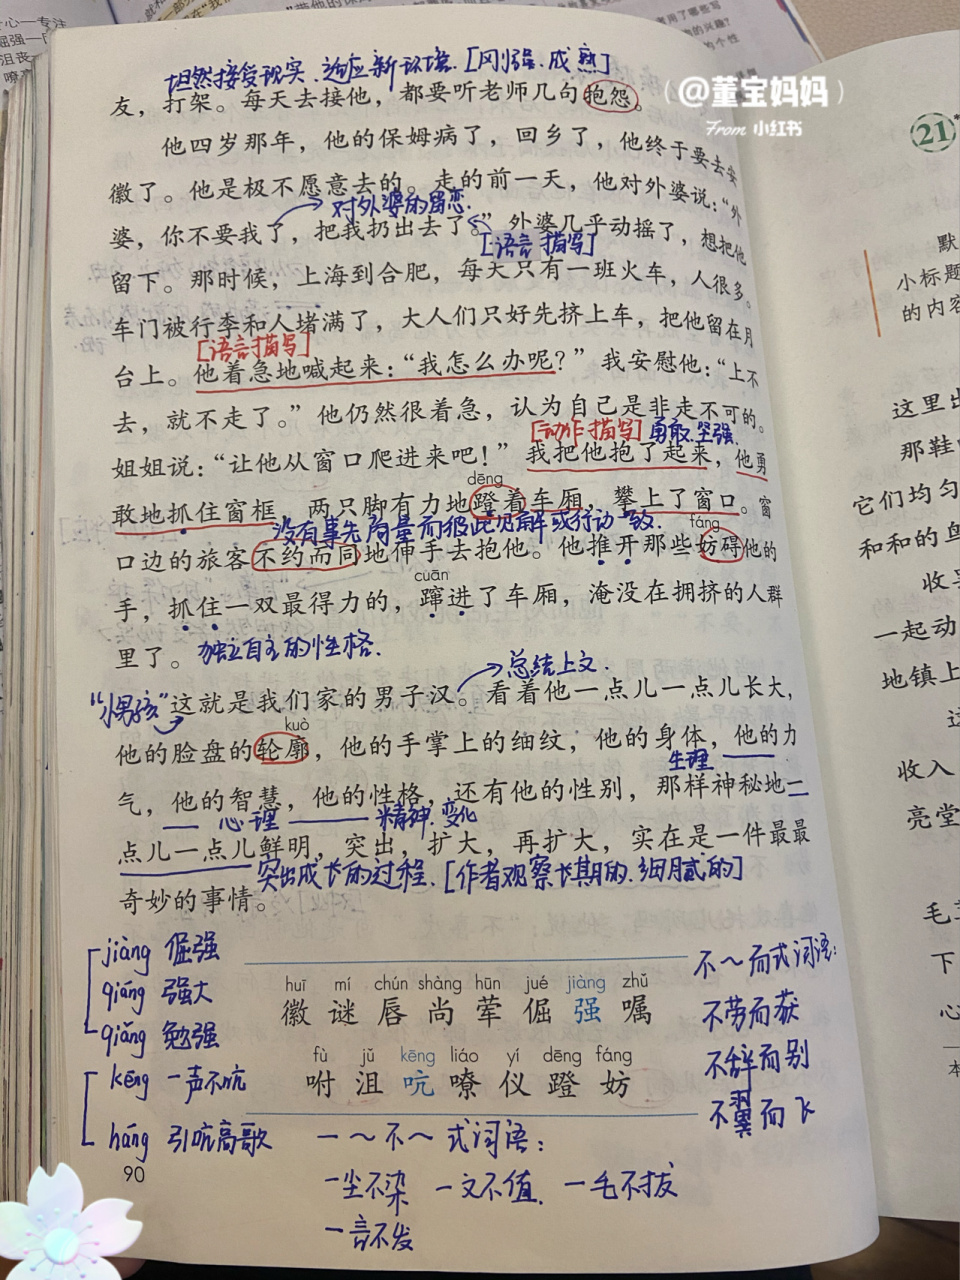 坦然接受现实.适应新环境.[刚强.成熟]
友，打架。每天去接他，都要听老师几句抱怨。
(@董宝妈妈)
From 小红书
他四岁那年，他的保姆病了，回乡了，他终于要去安
徽了。他是极不愿意去的。走的前一天，他对外婆说：“外
对外婆的留恋.
婆，你不要我了，把我扔出去了。”外婆几乎动摇了，想把他
[语言描写]
留下。那时候，上海到合肥，每天只有一班火车，人很多。
车门被行李和人堵满了，大人们只好先挤上车，把他留在月
[语言描写]
台上。他着急地喊起来：“我怎么办呢？”我安慰他：“上不
去，就不走了。”他仍然很着急，认为自己是非走不可的。
[动作描写]勇敢.坚强.
姐姐说：“让他从窗口爬进来吧！”我把他抱了起来，他勇
dēng
敢地抓住窗框，两只脚有力地蹬着车厢，攀上了窗口。窗
没有事先商量而彼此见解或行动一致.
fáng
口边的旅客不约而同地伸手去抱他。他推开那些妨碍他的
cuān
手，抓住一双最得力的，蹿进了车厢，淹没在拥挤的人群
里了。独立自主的性格.
总结上文.
“小男孩”这就是我们家的男子汉。看着他一点儿一点儿长大，
kuò
他的脸盘的轮廓，他的手掌上的细纹，他的身体，他的力
生理
气，他的智慧，他的性格，还有他的性别，那样神秘地一
心理 精神.变化
点儿一点儿鲜明，突出，扩大，再扩大，实在是一件最最
突出成长的过程.[作者观察长期的.细腻的]
奇妙的事情。
jiàng 倔强
qiáng 强大
qiǎng 勉强
kēng 一声不吭
háng 引吭高歌
huī mí chún shàng hūn jué jiàng zhǔ
徽 谜 唇 尚 荤 倔 强 嘱
fù jǔ kēng liáo yí dēng fáng
咐 沮 吭 嘹 仪 蹬 妨
不～而式词语：
不劳而获
不辞而别
不翼而飞
一～不～式词语：
一尘不染 一文不值. 一毛不拔
一言不发
90
21
默
小标题
的内容
这里出
那鞋
它们均匀
和和的鸟
收
一起动
地镇上
这
收入
亮堂
毛
下
心
本